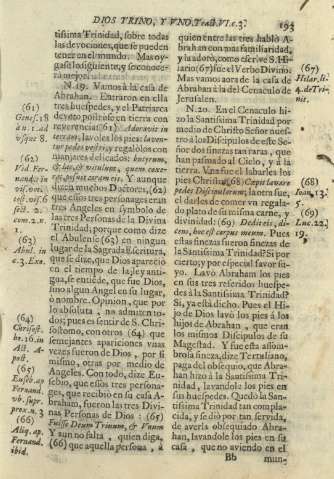 DIOS TRINO, Y UNO. Tract. VI. c. 3.
193
tissima Trinidad, sobre todas
las devociones, que se pueden
tener en el mundo. Mas oy-
gase lo siguiente, y se conoce-
rà mejor
N. 19. Vamos à la casa de
Abrahan. Entraron en ella
tres huespedes, y el Patriarca
devoto postròse en tierra con
reverencias (61) Adoravit in
terram, lavòles los pies: laven-
tur pedes vestri, y regalòlos con
manjares delicados: butyrum,
& lac, & vitulum, quem coxe-
rat
Y aunque
sienten muchos Doctores, (62)
que essos tres personages eran
tres Angeles en symbolo de
las tres Personas de la Divina
Trinidad; porque como dize
el Abulense (63) en ningun
lugar de la Sagrada Escritura,
que se dize, que Dios apareciò
en el tiempo de la ley anti-
gua, se entiende, que fue Dios,
sino algun Angel en su lugar,
ò nombre. Opinion, que por
lo absoluta, no admiten to-
dos; pues es sentir de S. Chri-
sostomo, con otros (64) que
semejantes apariciones vnas
vezes fueron de Dios, por sì
mismo, otras por medio de
Angeles. Con todo, dize Eu-
sebio, que essos tres persona-
ges, que recibiò en su casa A-
braham, fueron las tres Divi-
nas Personas de Dios: (65)
Fuisse Deum Trinum, & Unum
Y aun no falta, quien diga,
(66) que aquella persona, à
(61)
Genes. 18
(62)
Vid. Fer-
(63)
Abul. in
(64)
Chrisost.
(65)
Euseb. ap.
Fernand.
vb. supr.
prox. n. 3
(66)
Aliq. ap.
Fernand.
ibid.
quien entre las tres hablò A-
brahan con mas familiaridad,
y la adorò, como escrive S. Hi-
lario, (67) fue el Verbo Divino.
Mas vamos aora de la casa de
Abrahan à la del Cenaculo de
Jerusalen.
N. 20. En el Cenaculo hi-
zo la Santissima Trinidad por
medio de Christo Señor nues-
tro à los Discipulos de este Se-
ñor dos finezas tan raras, que
han pasmado al Cielo, y à la
tierra. Vna fue el labarles los
pies Christo, (68) Cepit lavare
pedes Discipulorum; la otra fue,
el darles de comer vn regala-
do plato de su misma carne, y
divinidad: (69) Dedit eis, di-
cens, hoc est corpus meum. Pues
estas finezas fueron finezas de
la Santissima Trinidad? Si por
cierto; y por especial favor su-
yo. Lavò Abraham los pies
en sus tres referidos huespe-
des à la Santissima Trinidad?
Si, ya està dicho. Pues el Hi-
jo de Dios lavò los pies à los
hijos de Abrahan, que eran
los mismos Discipulos de su
Magestad. Y fue esta assom-
brosa fineza, dize Tertuliano,
paga del obsequio, que Abra-
han hizo à la Santissima Tri-
nidad, lavandole los pies en
sus huespedes. Quedò la San-
tissima Trinidad tan compla-
cida, y se diò por tan servida,
de averla obsequiado Abra-
han, lavandole los pies en su
casa, que no aviendo en el
Bb
mun-
(67)
Hilar. li.
4. de Tri-
nit.
(68)
Joan. 13.
5.
(69)
Luc. 22.
19.